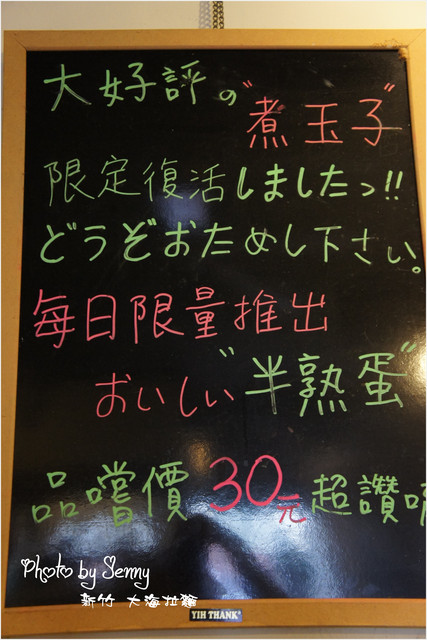 大好評の
"煮玉子"
限定復活しましたっ!!
どうぞおためし下さい。
每日限量推出
おいしい"半熟蛋"
品嚐價30元超讚
Photo by Senny
新竹 大海拉麵
YIH THANK